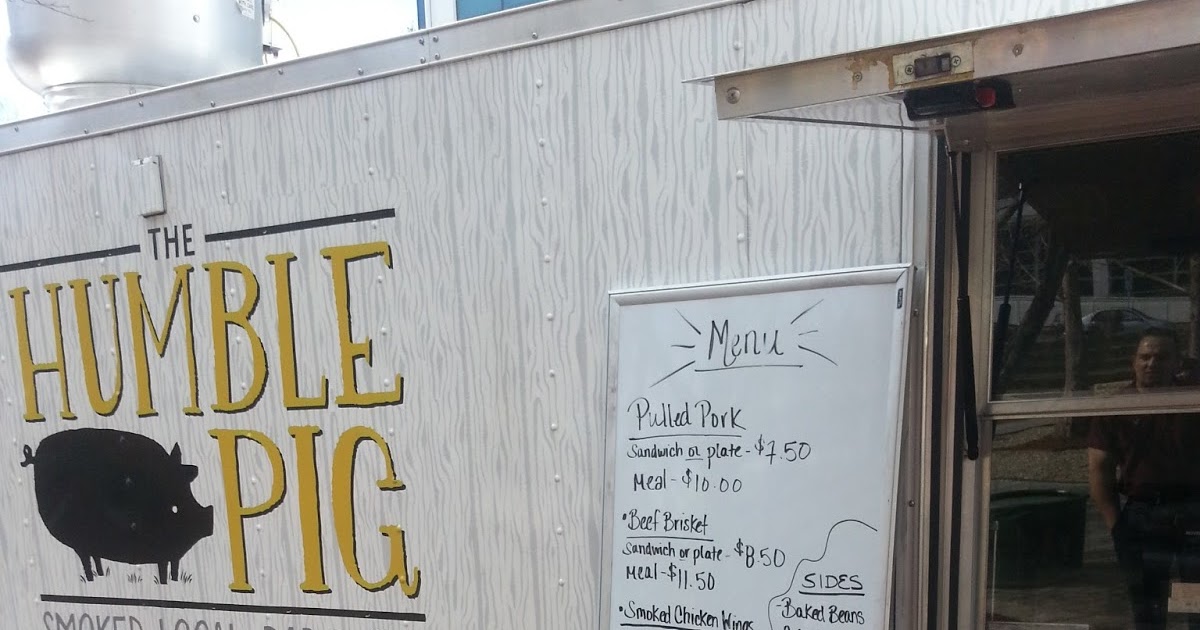 THE
HUMBLE
PIG
SMOKED LOCAL
Menu
Pulled Pork
Sandwich or plate - $7.50
Meal - $10.00
•Beef Brisket
Sandwich or plate - $8.50
Meal - $11.50
•Smoked Chicken Wings
SIDES
-Baked Beans